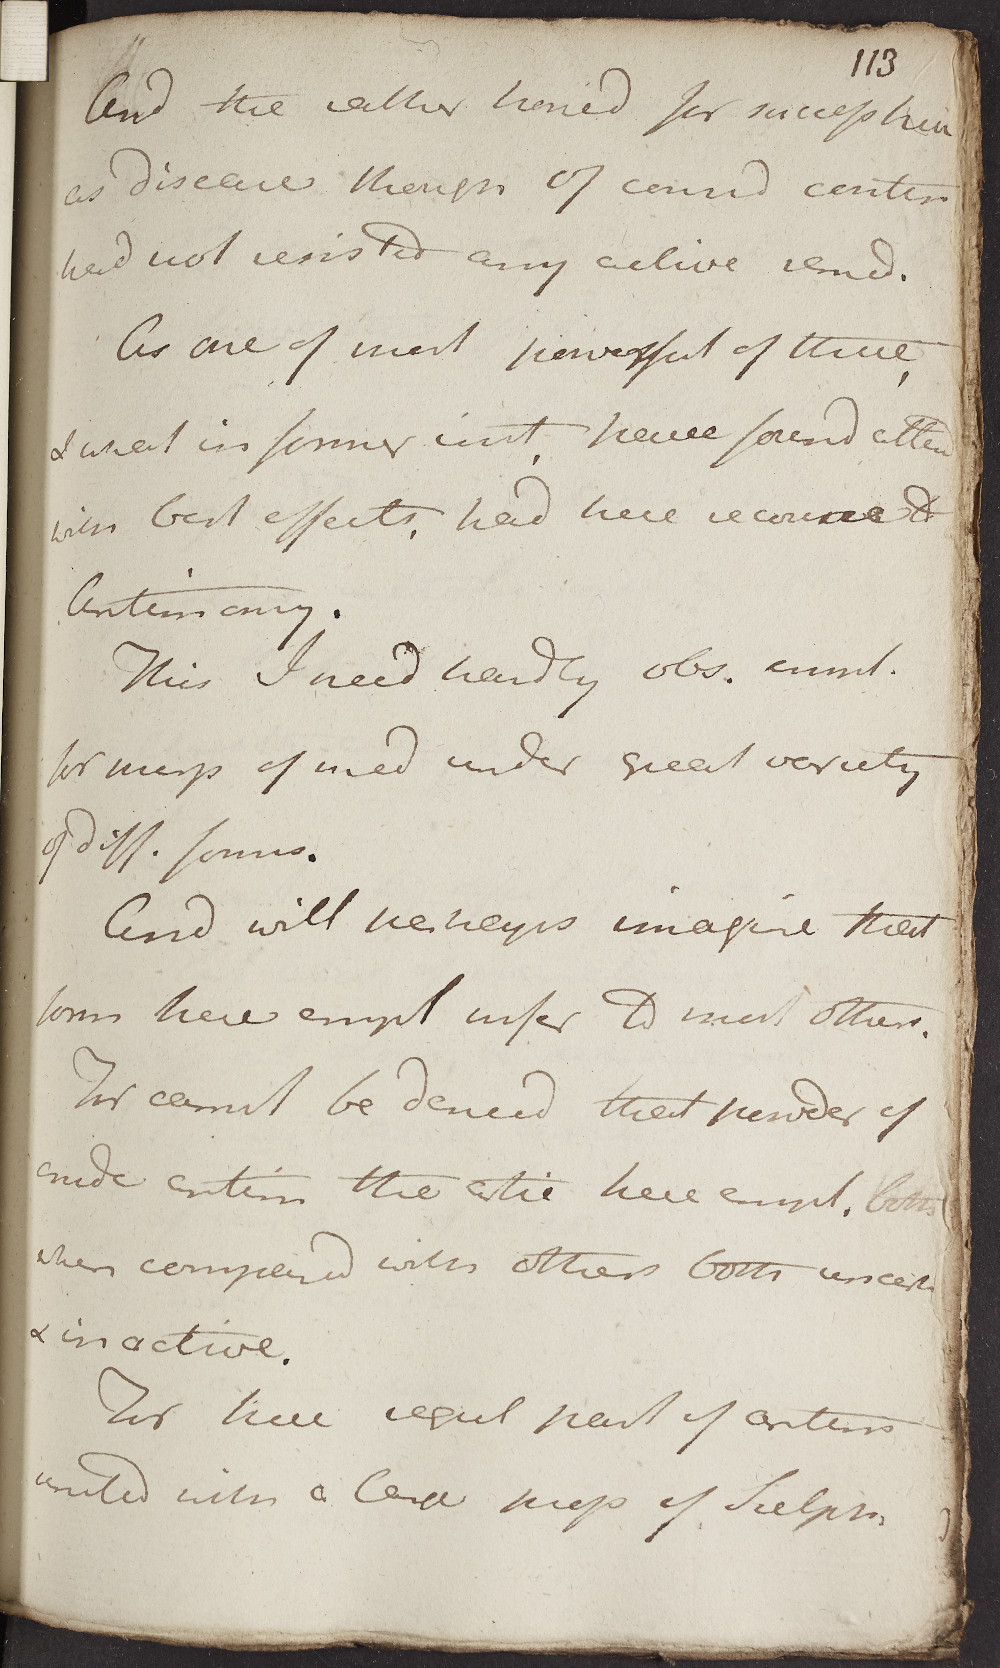 113
And the rather hoped for success here
as disease though of consid contin
had not resisted any active remed.
As one of most powerful of these,
& what in former inst, have found atten
with best effects, had here recourse to
Antimony.
This I need hardly obs. empl.
for purp of med under great variety
of diff. forms.
And will perhaps imagine that
form here empl infer to most others.
For cannot be denied that powder of
crude antim the artic here empl. both
when compared with others both uncert
& inactive.
For here regul part of antim
united with a large prop of Sulph,